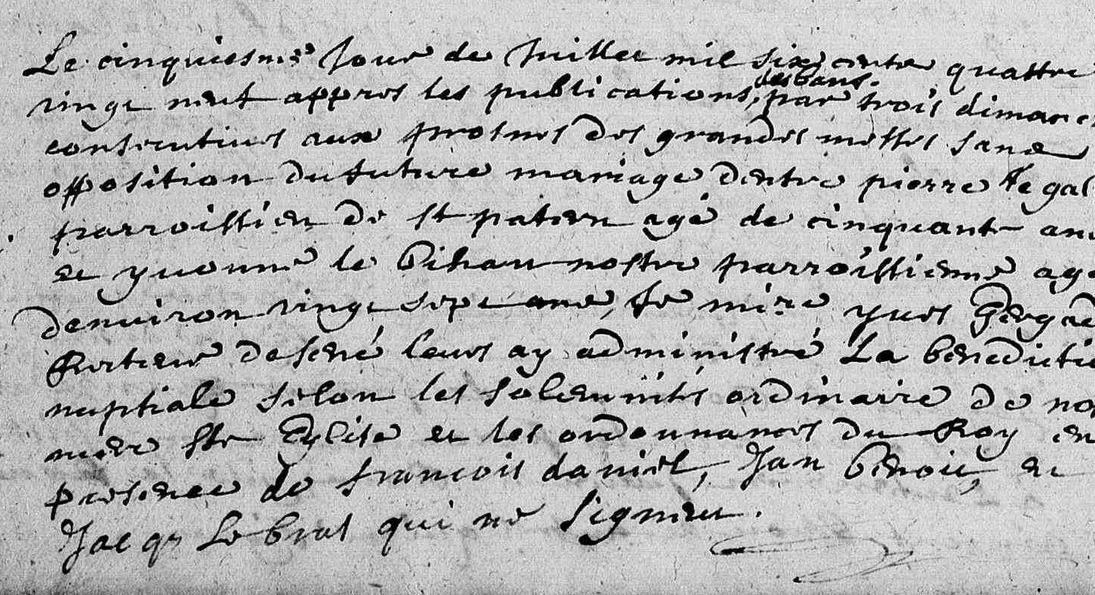 Le cinquiesme Jour de Juillet mil six cents quattre
vingt neuf appres les publications, des bans. par trois dimanc
consecutives aux prosnes des grandes messes sans
opposition du future mariage dentre pierre le gal
parroissien de st patern agé de cinquante ans
et yvonne le bihan nostre parroissienne agé
denuiron vingt sept ans, Je mire yves
Recteur de sené leurs ay administré La benedictio
nuptiale selon les solemnités ordinaire de nos
mere ste Eglise et les ordonnances du Roy en
presence de francois daniel, Jan benoit, et
Jacqs Le bras qui ne signent.